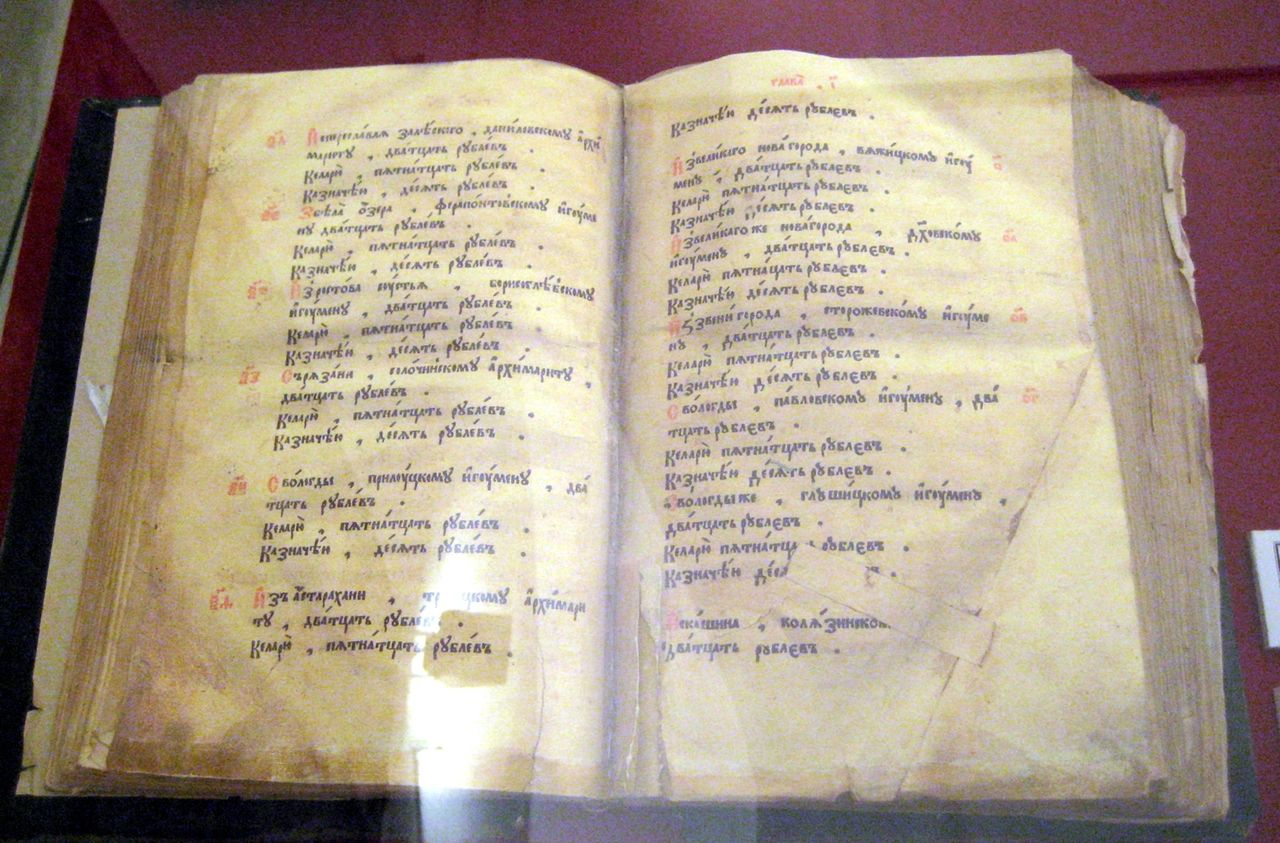 л҃д Исереславля залѣского , даниловскому архи
мариту , два́тцать рубле́въ .
Келарю̀ , пѧтна́тцать рубле́въ .
Казначе́ю , де́сѧть рубле́въ .
л҃е Збѣла̀ о́зера , ферапо́нтовскому игу́ме
ну два́тцать рубле́въ .
Келарю̀ , пѧтна́тцать рубле́въ .
Казначе́ю , де́сѧть рубле́въ .
Изросто́ва сꙋ́стья , борисоглѣ́бскому
игу́мену , два́тцать рубле́въ .
Келарю̀ , пѧтна́тцать рубле́въ .
Казначе́ю , де́сѧть рубле́въ .
Сърѧза́ни , соло́чинскому архи́мариту ,
два́тцать рубле́въ .
Келарю̀ , пѧтна́тцать рубле́въ .
Казначе́ю , де́сѧть рубле́въ .
Сво́логды , прилу́цкому игу́мену , два́
тцать рубле́въ .
Келарю̀ , пѧтна́тцать рубле́въ .
Казначе́ю , де́сѧть рубле́въ .
Изъ а́старахани , архи́мари
ту , два́тцать рубле́въ .
Келарю̀ , пѧтна́тцать рубле́въ .
глава̀ , і҃
Казначе́ю де́сѧть рублевъ .
Извели́каго но́ва го́рода , вѧ́жицкому игу́ о҃
мену , два́тцать рублевъ .
Келарю̀ пѧтна́тцать рублевъ .
Казначе́ю де́сѧть рублевъ .
Извели́каго же нова́города , дх҃овскому о҃а
игу́мену , два́тцать рублевъ .
Келарю̀ пѧтна́тцать рублевъ .
Казначе́ю де́сѧть рублевъ .
Иꙁзвени́ го́рода , стороже́вскому игу́ме о҃в
ну , два́тцать рублевъ .
Келарю̀ пѧтна́тцать рублевъ .
Казначе́ю де́сѧть рублевъ .
Сво́логды , па́вловскому игу́мену , два́ о҃г
тцать рублевъ .
Келарю̀ пѧтна́тцать рублевъ .
Казначе́ю де́сѧть рублевъ .
Сво́логды же , глу́шицкому игу́мену ,
два́тцать рублевъ .
Келарю̀ пѧтна́тца рублевъ .
Казначе́ю де́сѧ въ .
Иска́шина , колѧ́зинском
два́тцать рублевъ .